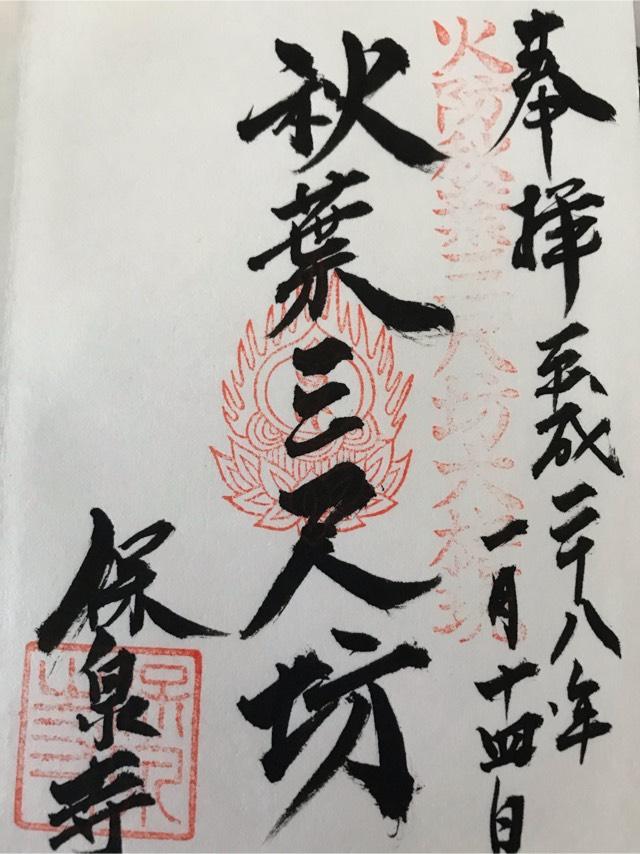 奉拝 平成二十八年
一月十四日
火防秋葉三尺坊大権現
秋葉三尺坊
保泉寺